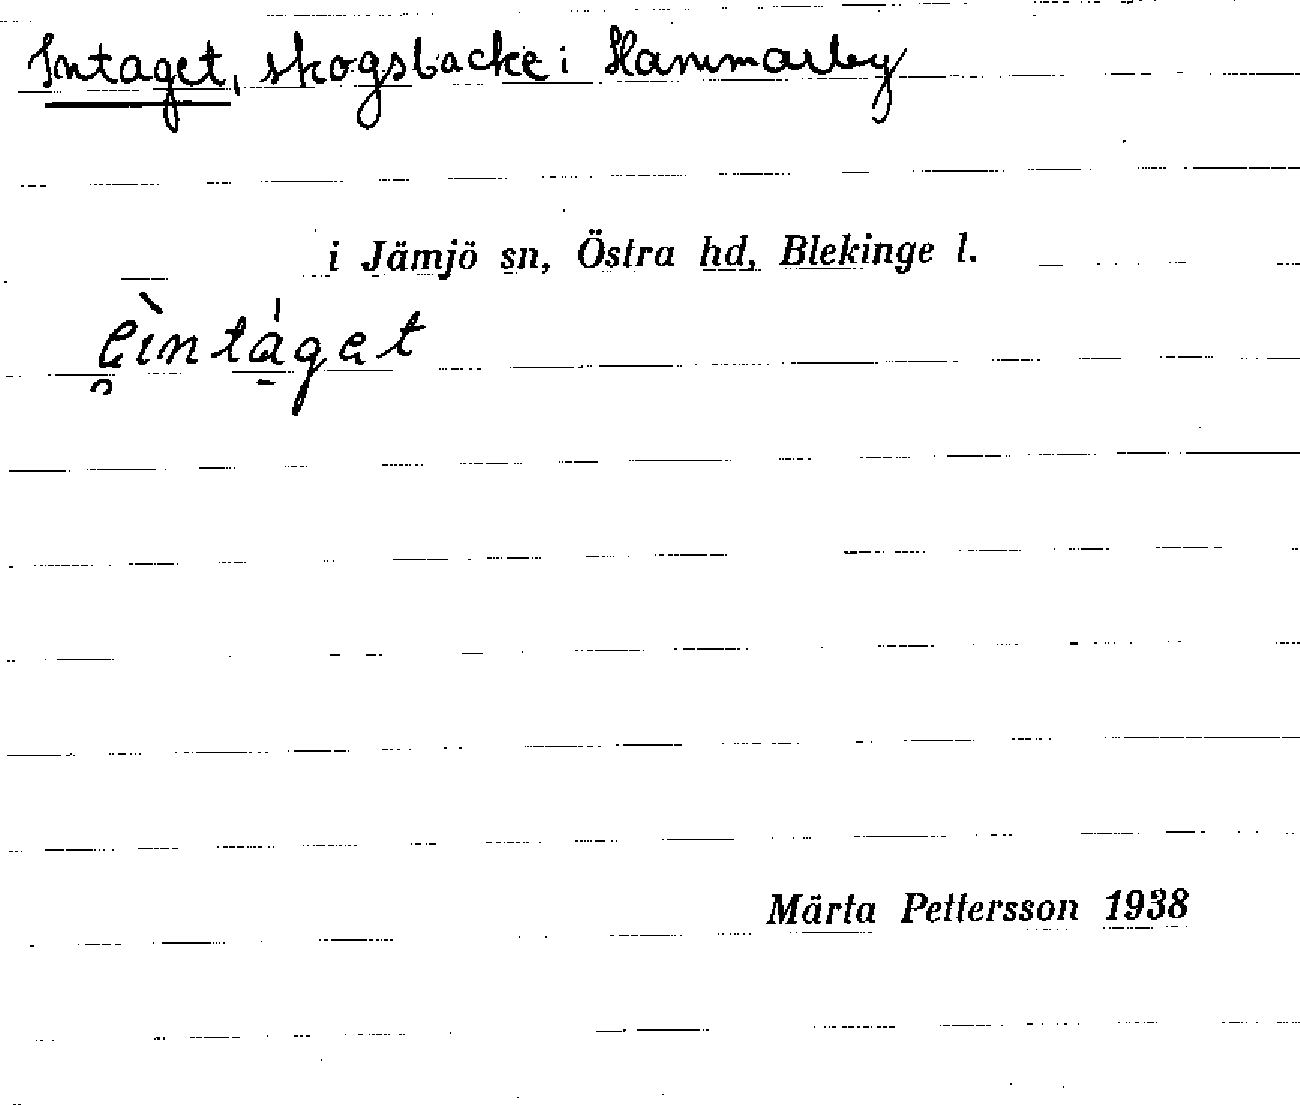 Intaget, skogsbacke i Hammarby
i Jämjö sn, Östra hd, Blekinge l.
e̯ìntá̱get
Märta Pettersson 1938